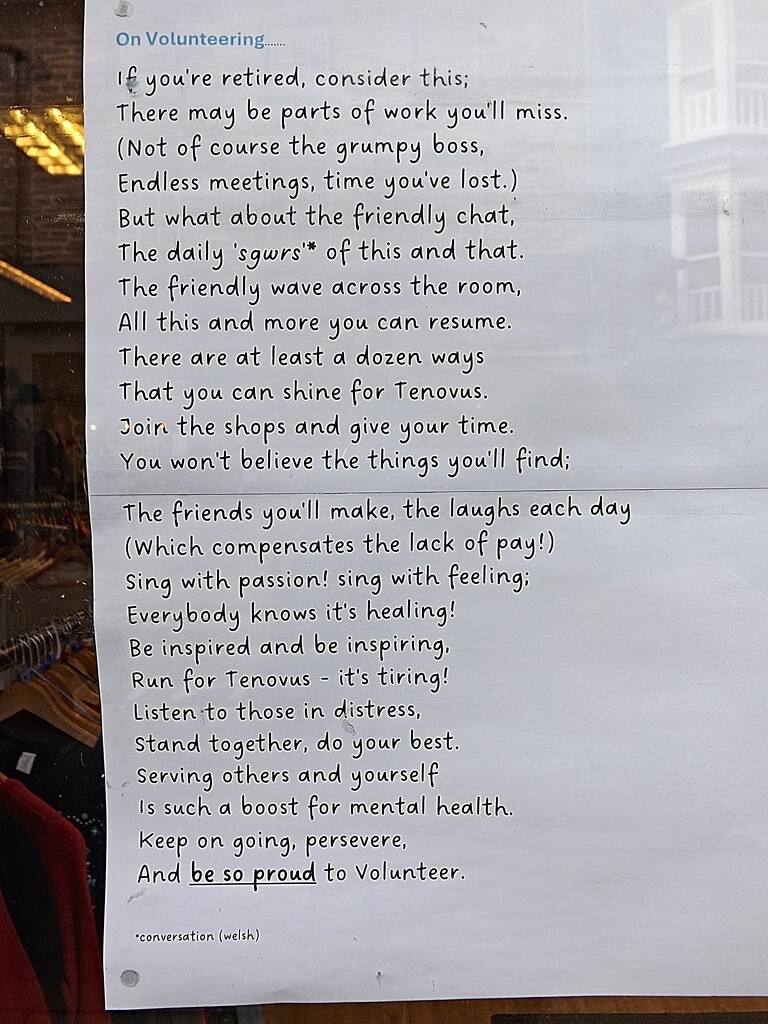 On Volunteering.......
If you're retired, consider this;
There may be parts of work you'll miss.
(Not of course the grumpy boss,
Endless meetings, time you've lost.)
But what about the friendly chat,
The daily 'sgwrs'* of this and that.
The friendly wave across the room,
All this and more you can resume.
There are at least a dozen ways
That you can shine for Tenovus.
Join the shops and give your time.
You won't believe the things you'll find;
The friends you'll make, the laughs each day
(Which compensates the lack of pay!)
Sing with passion! sing with feeling;
Everybody knows it's healing!
Be inspired and be inspiring,
Run for Tenovus - it's tiring!
Listen to those in distress,
Stand together, do your best.
Serving others and yourself
Is such a boost for mental health.
Keep on going, persevere,
And be so proud to Volunteer.
*conversation (welsh)